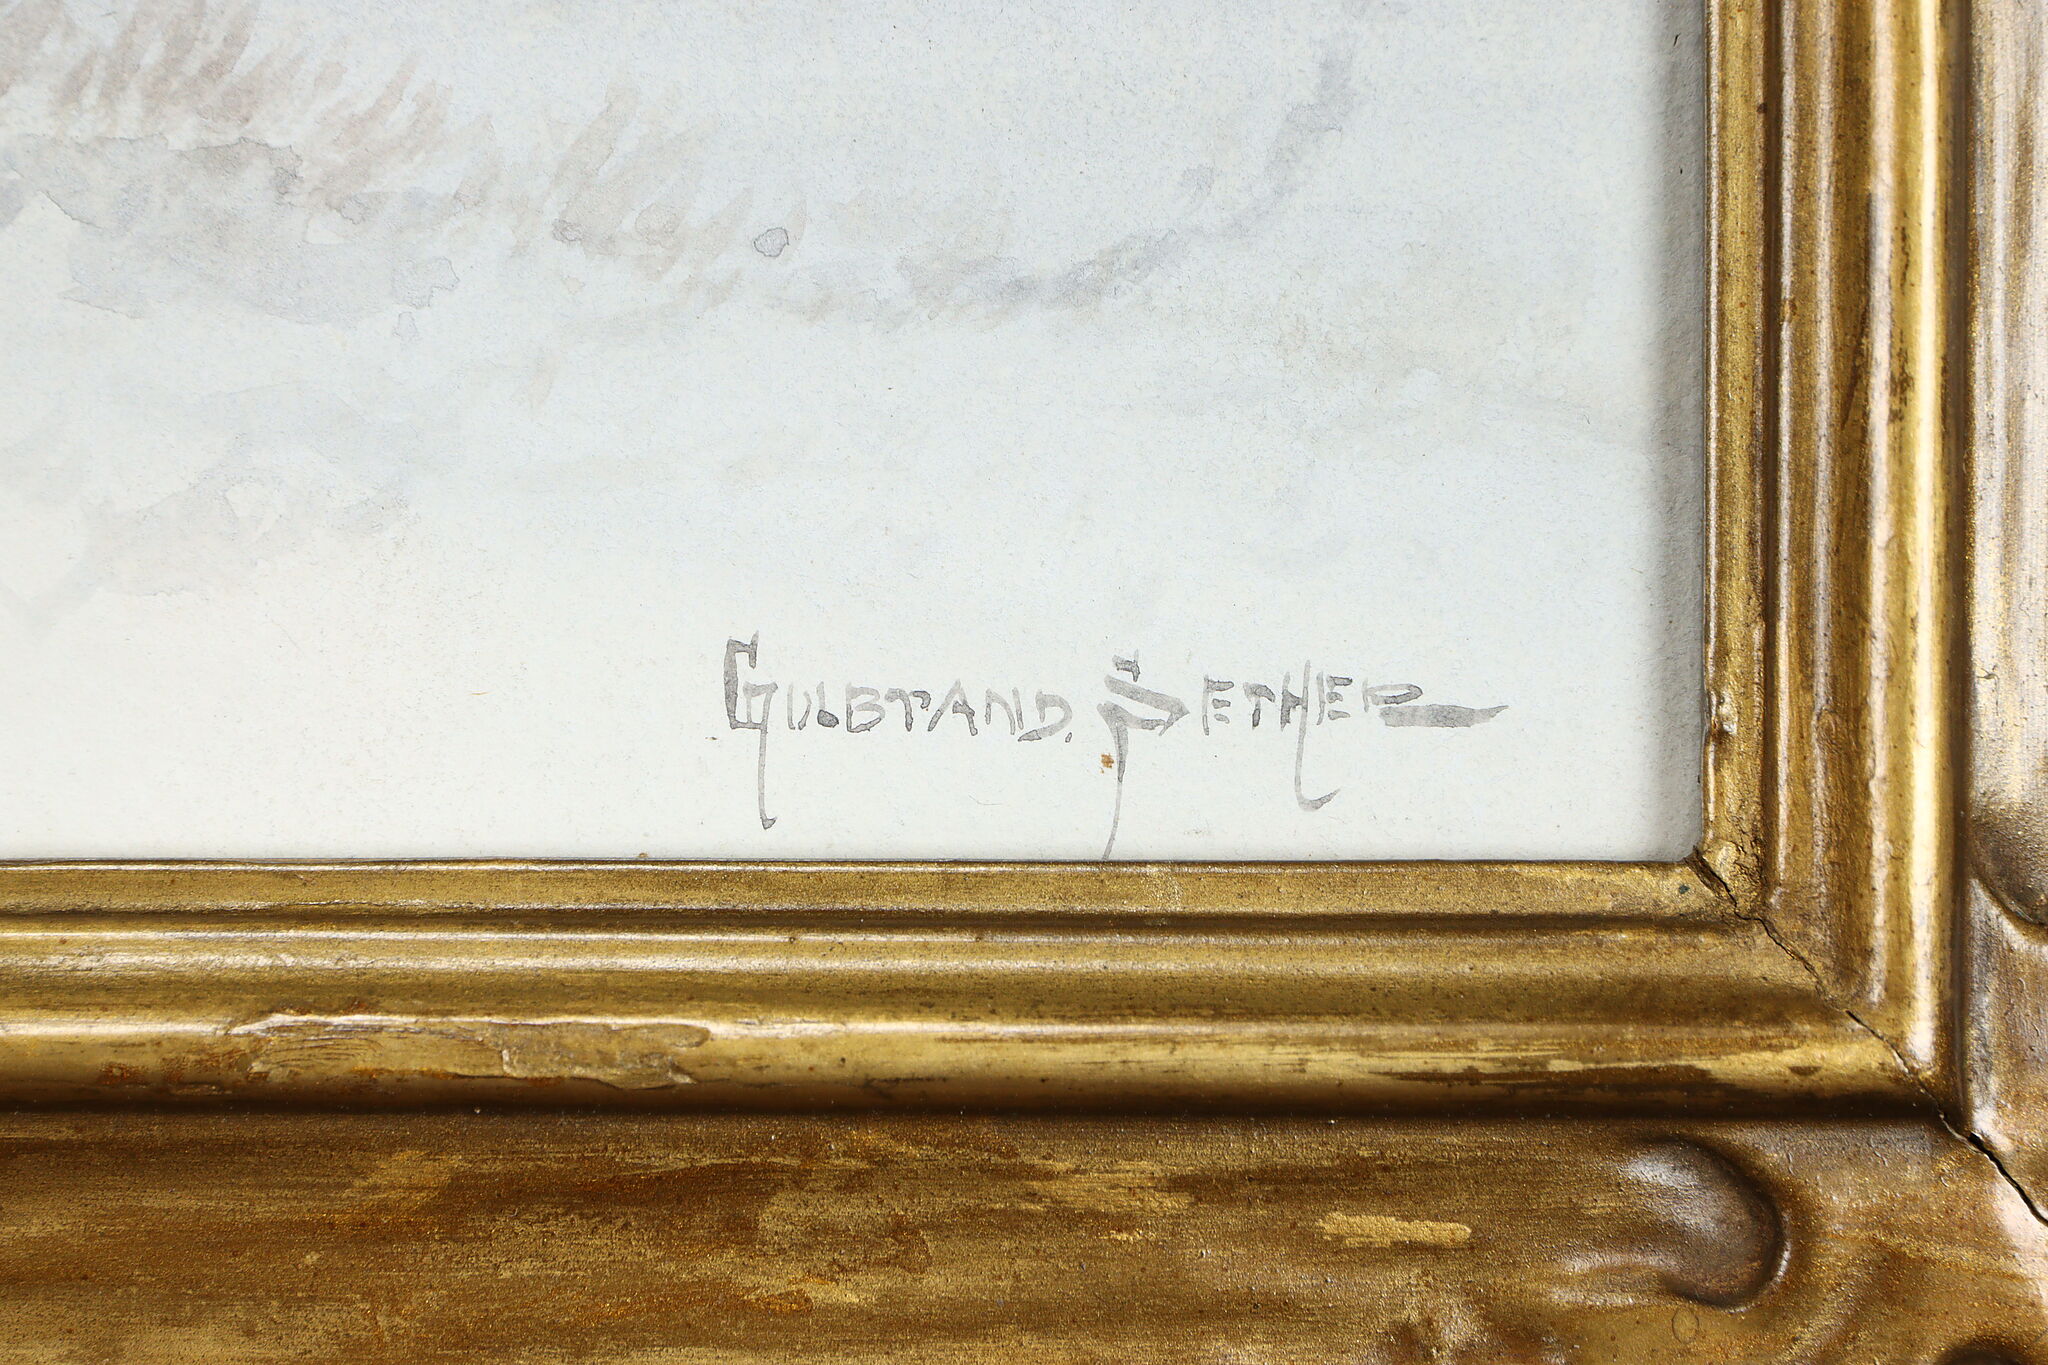 GULBRAND. SETHER